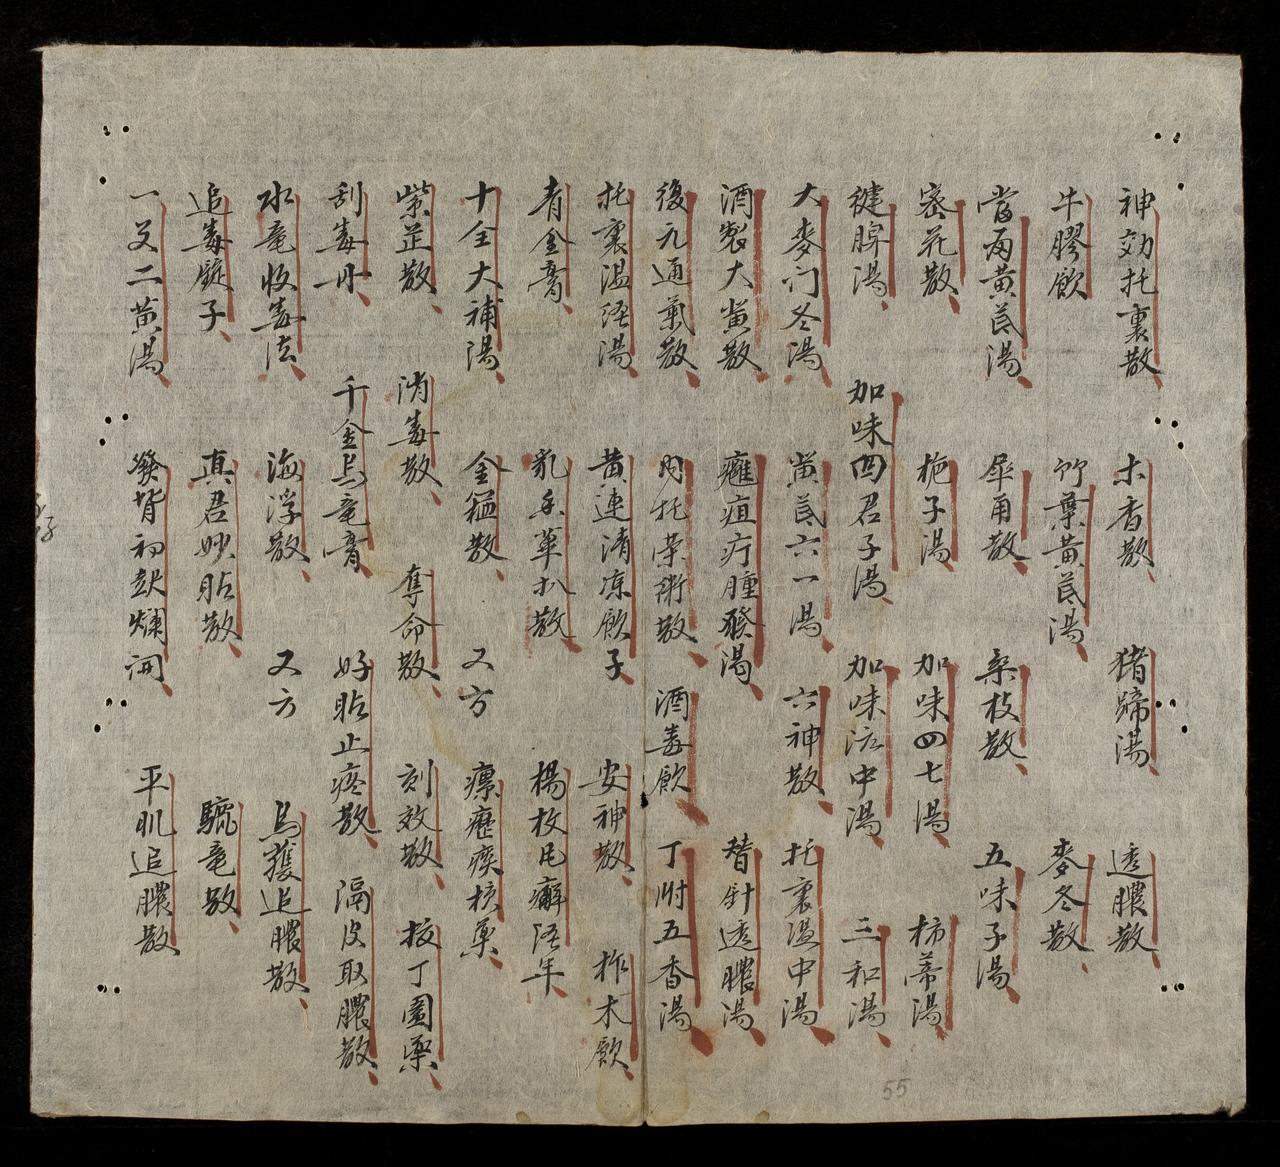 神効托裏散 木香散 猪蹄湯 透膿散
牛膠飲 竹葉黃芪湯 麥冬散
當両黃芪湯 犀角散 桑枝散 五味子湯
密花散 栀子湯 加味四七湯 柿蒂湯
健脾湯 加味四君子湯 加味治中湯 三和湯
大麥门冬湯 黃芪六一湯 六神散 托裏温中湯
酒製大黃散 癰疽疔腫發湯 替針透膿湯
復元通氣散 内托荣衛散 酒毒飲 丁附五香湯
托裏温経湯 黄連清凉飲子 安神散 柞木飲
青金膏 乳香草扒散 楊枚瓦癬経年
十全大補湯 金箍散 又方 瘰癧痰核薬
紫芷散 消毒散 奪命散 刻效散 拔丁圍薬
刮毒丹 千金烏竜膏 好貼止疼散 隔皮取膿散
水竜收毒法 海浮散 又方 烏獲追膿散
追毒錠子 真君妙貼散 驪竜散
一叉二黃湯 發背初起爛開 平肌追膿散
55